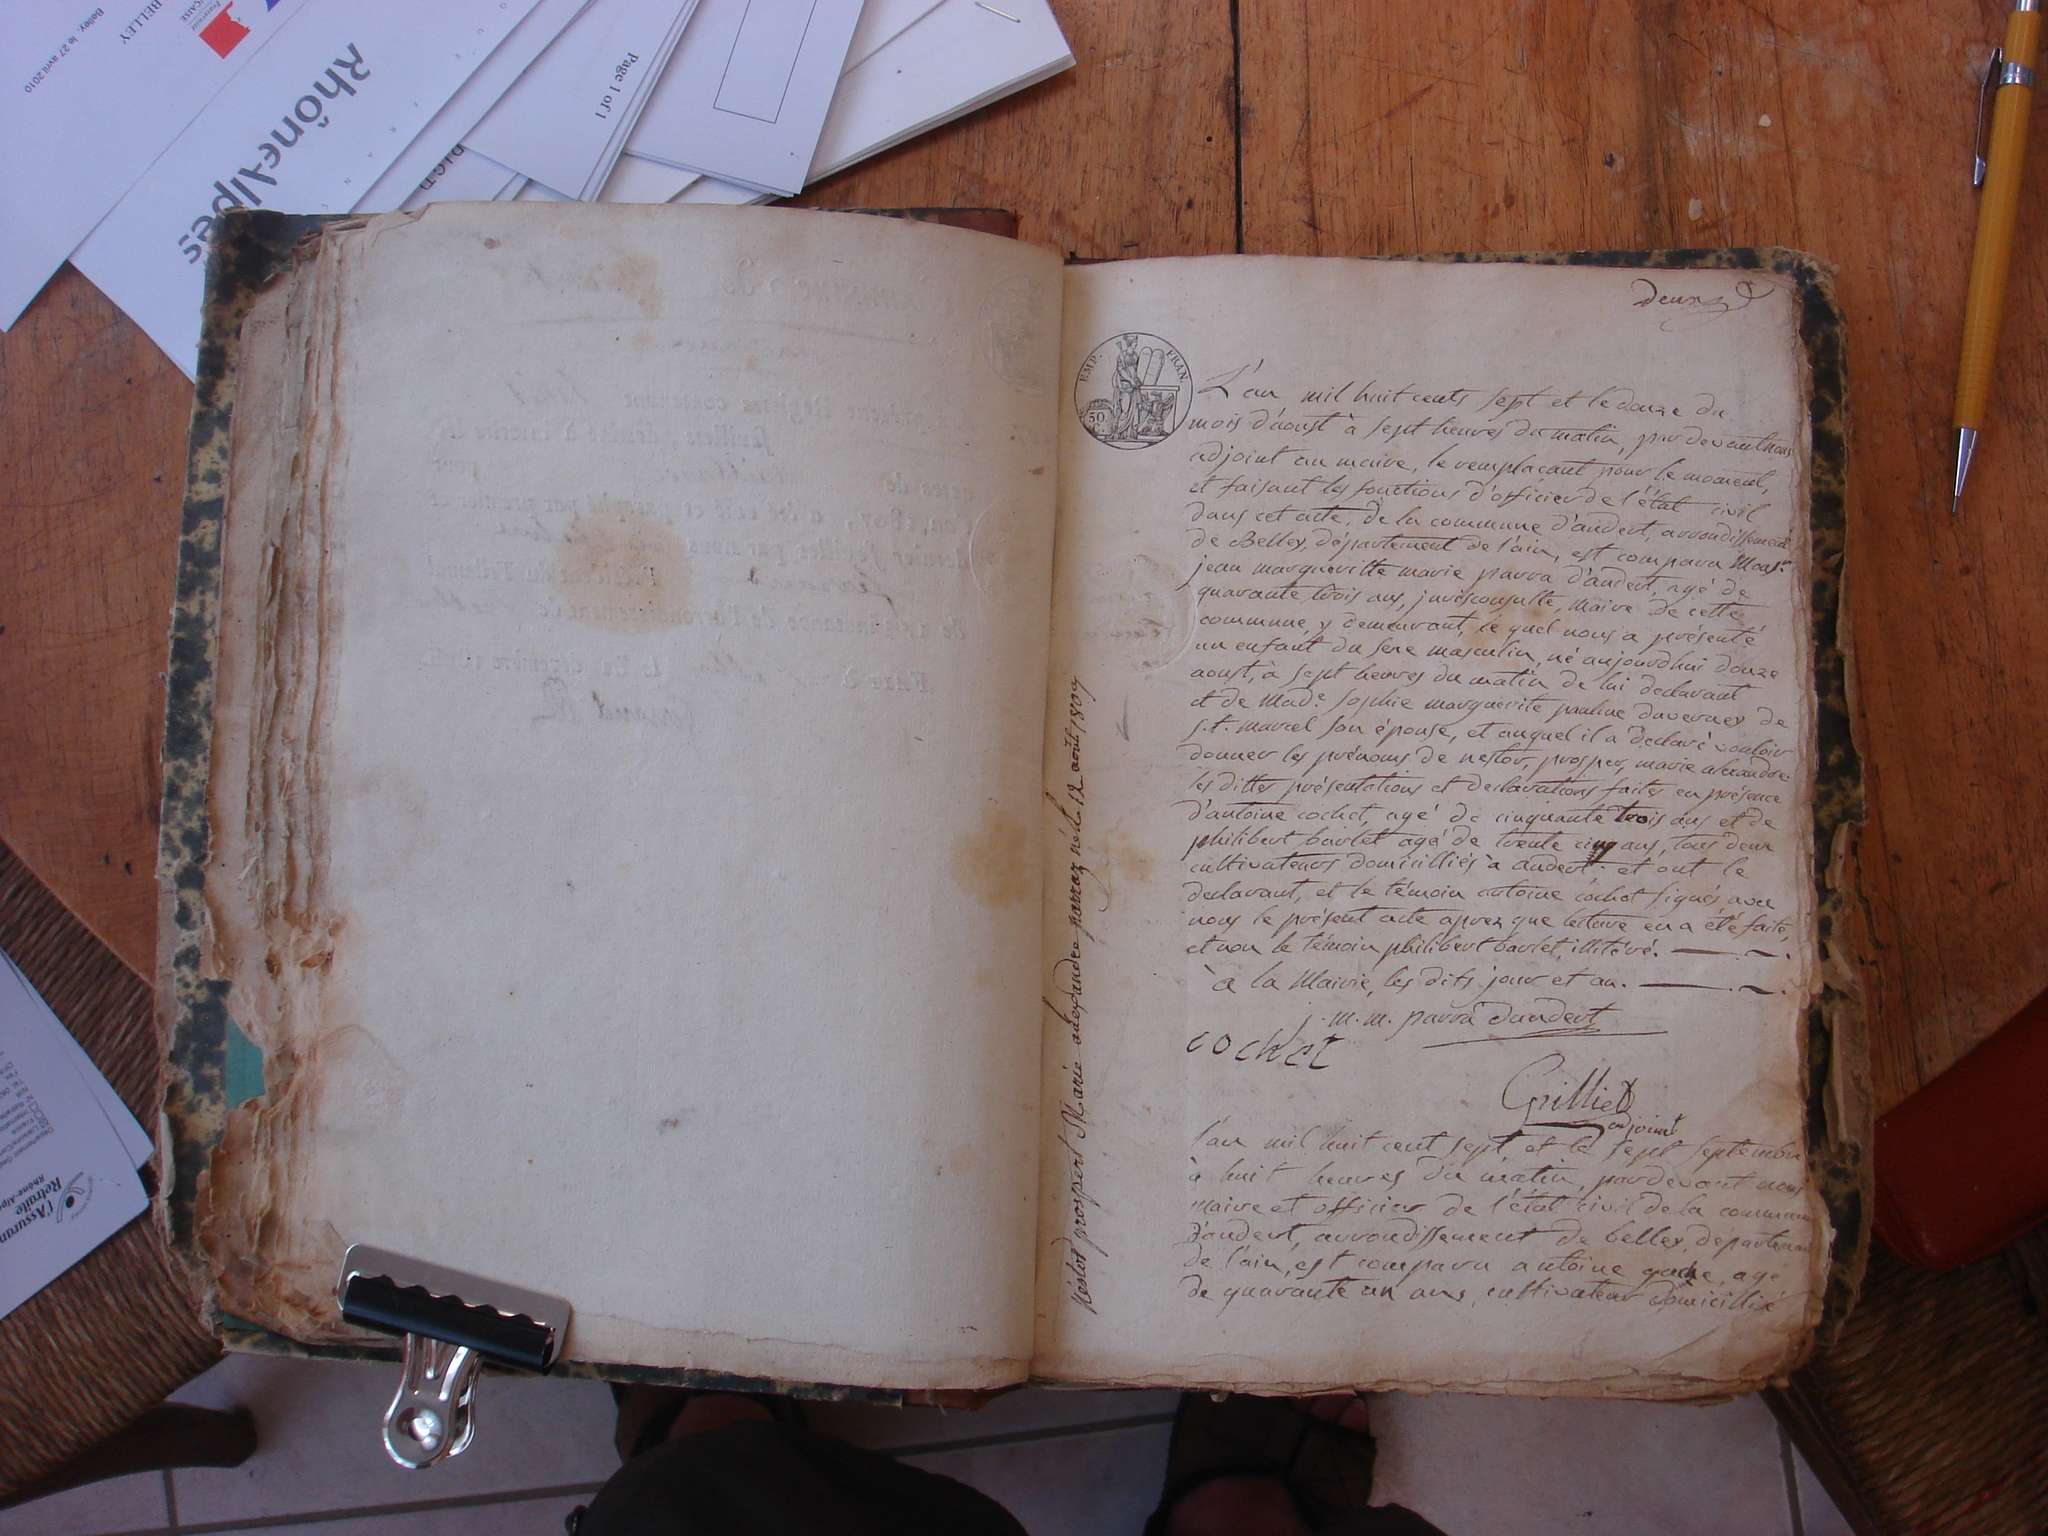 Belley, le 27 avril 2010
BELLEY
Rhône-Alpes
Page 1 of 1
deux
EMP. FRAN
50
C.
L'an mil huit cents sept et le douze du
mois d'aoust à sept heures du matin, par devant nous
adjoint au maire, le remplaçant pour le moment,
et faisant les fonctions d'officier de l'état civil
dans cet acte, de la commune d'andert, arrondissement
de Belley, département de l'ain, est comparu Monsr.
jean margueritte marie parra d'andert, agé de
quarante trois ans, jurisconsulte, maire de cette
commune, y demeurant, le quel nous a présenté
un enfant du sexe masculin, né aujourdhui douze
aoust, à sept heures du matin de lui declarant
et de Made. sophie marguerite pauline duverney de
s.t. marcel son épouse, et auquel il a declaré vouloir
donner les prénoms de nestor, prosper, marie alexandre.
les dittes présentations et declarations faites en présence
d'antoine cochet, agé de cinquante trois ans et de
philibert barlet agé de trente cinq ans, tous deux
cultivateurs domicilliés à andert: et ont le
declarant, et le témoin antoine cochet signés avec
nous le présent acte aprez que lecture en a été faite,
et non le témoin philibert barlet, illitéré.
à la Mairie, les dits jour et an.
j. m. m. parra dandert
cochet
Grilliet
adjoint
l'an mil huit cent sept et le sept septembre
à huit heures du matin, pardevant nous
maire et officier de l'état civil de la commune
d'andert, arrondissement de belley, departement
de l'ain, est comparu antoine gache, agé
de quarante un ans, cultivateur domicillié
Nestor prospert Marie alexandre parraz né le 12 août 1807
l'Assurance
Retraite
Rhône-Alpes